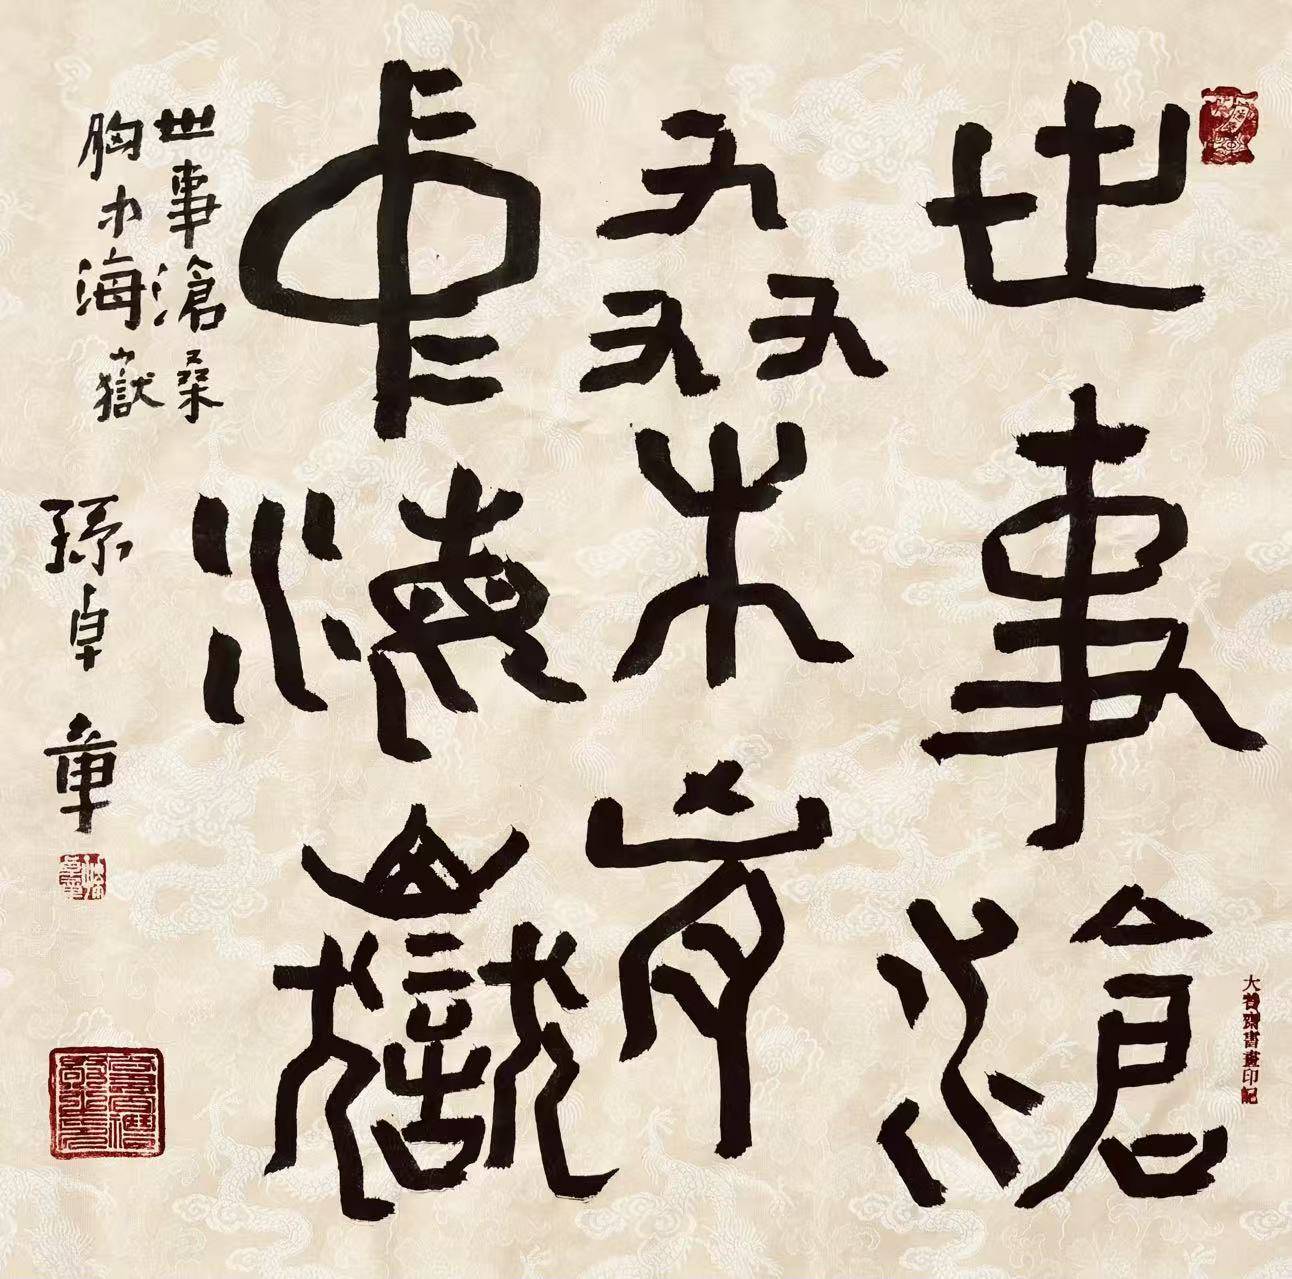 世事滄
桑胸
中海嶽
世事滄桑
胸中海嶽
孫卓章
大齋書畫印記